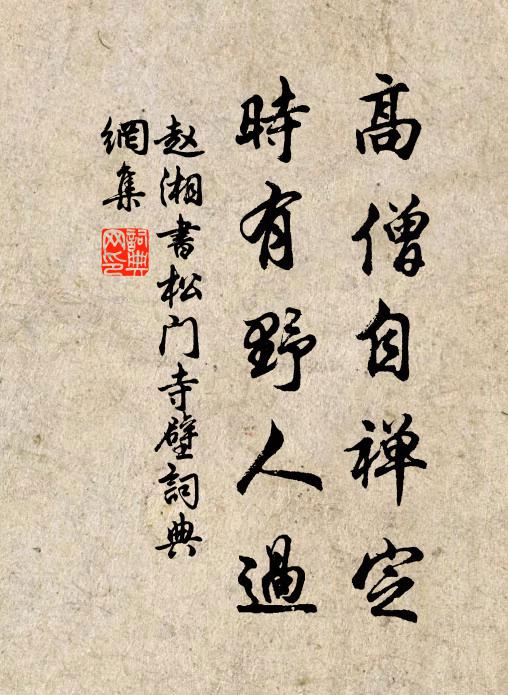 高僧自禅定
時有野人過
赵湘書松门寺壁詞典
網集
詞典
网印